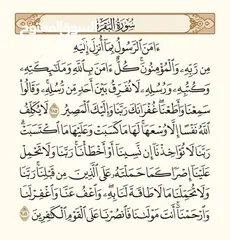 سُورَةُ البَقَرَةِ
السوق المفتوح
ءَامَنَ ٱلرَّسُولُ بِمَآ أُنزِلَ إِلَيْهِ
مِن رَّبِّهِۦ وَٱلْمُؤْمِنُونَ كُلٌّ ءَامَنَ بِٱللَّهِ وَمَلَٰٓئِكَتِهِۦ
وَكُتُبِهِۦ وَرُسُلِهِۦ لَا نُفَرِّقُ بَيْنَ أَحَدٍ مِّن رُّسُلِهِۦ وَقَالُوا۟
سَمِعْنَا وَأَطَعْنَا غُفْرَانَكَ رَبَّنَا وَإِلَيْكَ ٱلْمَصِيرُ ٢٨٥ لَا يُكَلِّفُ
ٱللَّهُ نَفْسًا إِلَّا وُسْعَهَا لَهَا مَا كَسَبَتْ وَعَلَيْهَا مَا ٱكْتَسَبَتْ
رَبَّنَا لَا تُؤَاخِذْنَآ إِن نَّسِينَآ أَوْ أَخْطَأْنَا رَبَّنَا وَلَا تَحْمِلْ
عَلَيْنَآ إِصْرًا كَمَا حَمَلْتَهُۥ عَلَى ٱلَّذِينَ مِن قَبْلِنَا رَبَّنَا
وَلَا تُحَمِّلْنَا مَا لَا طَاقَةَ لَنَا بِهِۦ وَٱعْفُ عَنَّا وَٱغْفِرْ لَنَا
وَٱرْحَمْنَآ أَنتَ مَوْلَىٰنَا فَٱنصُرْنَا عَلَى ٱلْقَوْمِ ٱلْكَٰفِرِينَ ٢٨٦